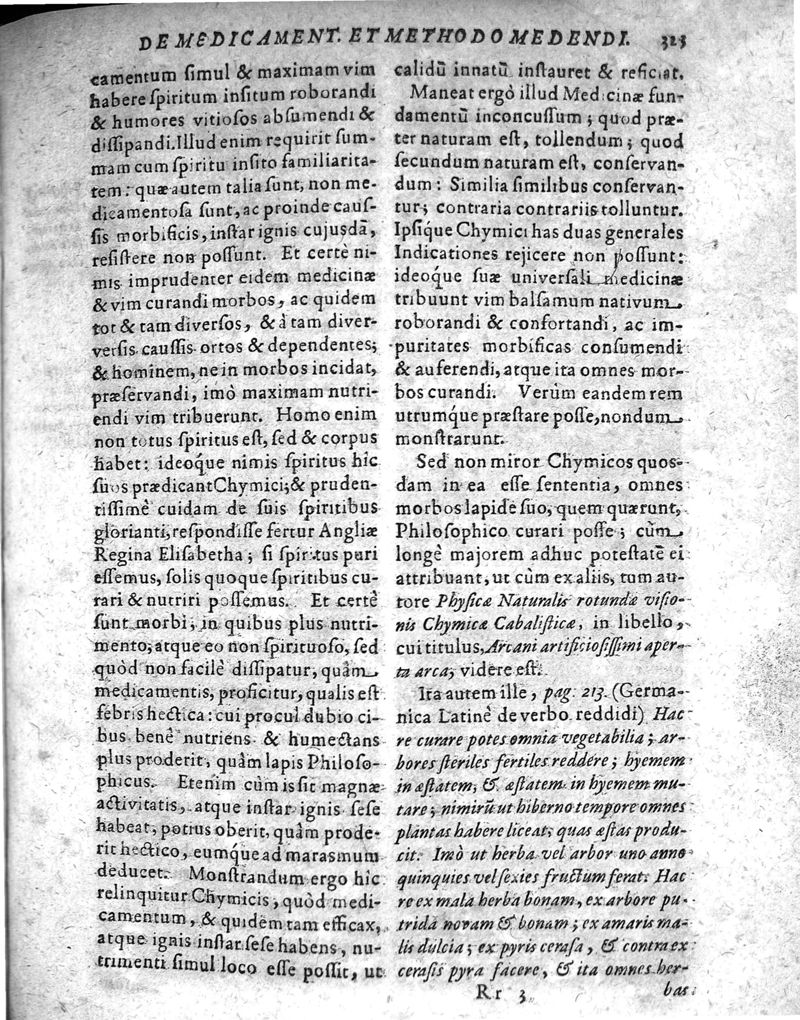 DE MEDICAMENT. ET METHODO MEDENDI. 323
camentum ſimul & maximam vim
habere ſpiritum inſitum roborandi
& humores vitioſos abſumendi &
diſſipandi. Illud enim requirit ſum-
mam cum ſpiritu inſito familiarita-
tem: quæ autem talia ſunt, non me-
dicamentoſa ſunt, ac proinde cauſ-
ſis morbificis, inſtar ignis cujuſdā,
reſiſtere non poſſunt. Et certè ni-
mis imprudenter eidem medicinæ
& vim curandi morbos, ac quidem
tot & tam diverſos, & à tam diver-
verſis cauſſis ortos & dependentes;
& hominem, ne in morbos incidat,
præſervandi, imò maximam nutri-
endi vim tribuerunt. Homo enim
non totus ſpiritus eſt, ſed & corpus
habet: ideoq́ue nimis ſpiritus hîc
ſuos prædicant Chymici; & pruden-
tiſſimè cuidam de ſuis ſpiritibus
glorianti, reſpondiſſe fertur Angliæ
Regina Eliſabetha; ſi ſpiritus puri
eſſemus, ſolis quoque ſpiritibus cu-
rari & nutriri poſſemus. Et certè
ſunt morbi, in quibus plus nutri-
mento, atque eo non ſpirituoſo, ſed
quòd non facilè diſſipatur, quàm
medicamentis, proficitur, qualis eſt
febris hectica: cui procul dubio ci-
bus benè nutriens & humectans
plus proderit, quàm lapis Philoſo-
phicus. Etenim cùm is ſit magnæ
activitatis, atque inſtar ignis ſeſe
habeat, potius oberit, quàm prode-
rit hectico, eumq́ue ad marasmum
deducet. Monſtrandum ergo hîc
relinquitur Chymicis, quòd medi-
camentum, & quidem tam efficax,
atque ignis inſtar ſeſe habens, nu-
trimenti ſimul loco eſſe poſſit, ut
calidū innatū inſtauret & reficiat.
Maneat ergò illud Medicinæ fun-
damentū inconcuſſum; quod præ-
ter naturam eſt, tollendum; quod
ſecundum naturam eſt, conſervan-
dum: Similia ſimilibus conſervan-
tur; contraria contrariis tolluntur.
Ipſique Chymici has duas generales
Indicationes rejicere non poſſunt:
ideoq́ue ſuæ univerſali medicinæ
tribuunt vim balſamum nativum
roborandi & confortandi, ac im-
puritates morbificas conſumendi
& auferendi, atque ita omnes mor-
bos curandi. Verùm eandem rem
utrumq́ue præſtare poſſe, nondum
monſtrarunt.
Sed non miror Chymicos quoſ-
dam in ea eſſe ſententia, omnes
morbos lapide ſuo, quem quærunt,
Philoſophico curari poſſe; cùm
longè majorem adhuc poteſtatē ei
attribuant, ut cùm ex aliis, tum au-
tore Phyſicæ Naturalis rotundæ viſio-
nis Chymicæ Cabaliſticæ, in libello,
cui titulus, Arcani artificioſiſſimi aper-
ta arca, videre eſt.
Ita autem ille, pag. 213. (Germa-
nica Latinè de verbo reddidi) Hac
re curare potes omnia vegetabilia; ar-
bores ſteriles fertiles reddere; hyemem
in æſtatem, & æſtatem in hyemem mu-
tare; nimirū ut hiberno tempore omnes
plantas habere liceat, quas æſtas produ-
cit. Imò ut herba vel arbor uno anno
quinquies vel ſexies fructum ferat. Hac
re ex mala herba bonam, ex arbore pu-
trida novam & bonam; ex amaris ma-
lis dulcia; ex pyris ceraſa, & contra ex
ceraſis pyra facere, & ita omnes her-
Rr 3 bas